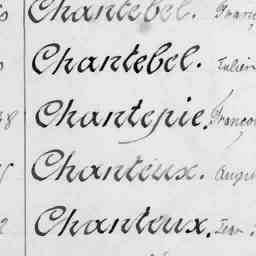 Chantebel.
Chantebel. Julien
Chantepie. François
Chanteux.
Chanteux. Jean